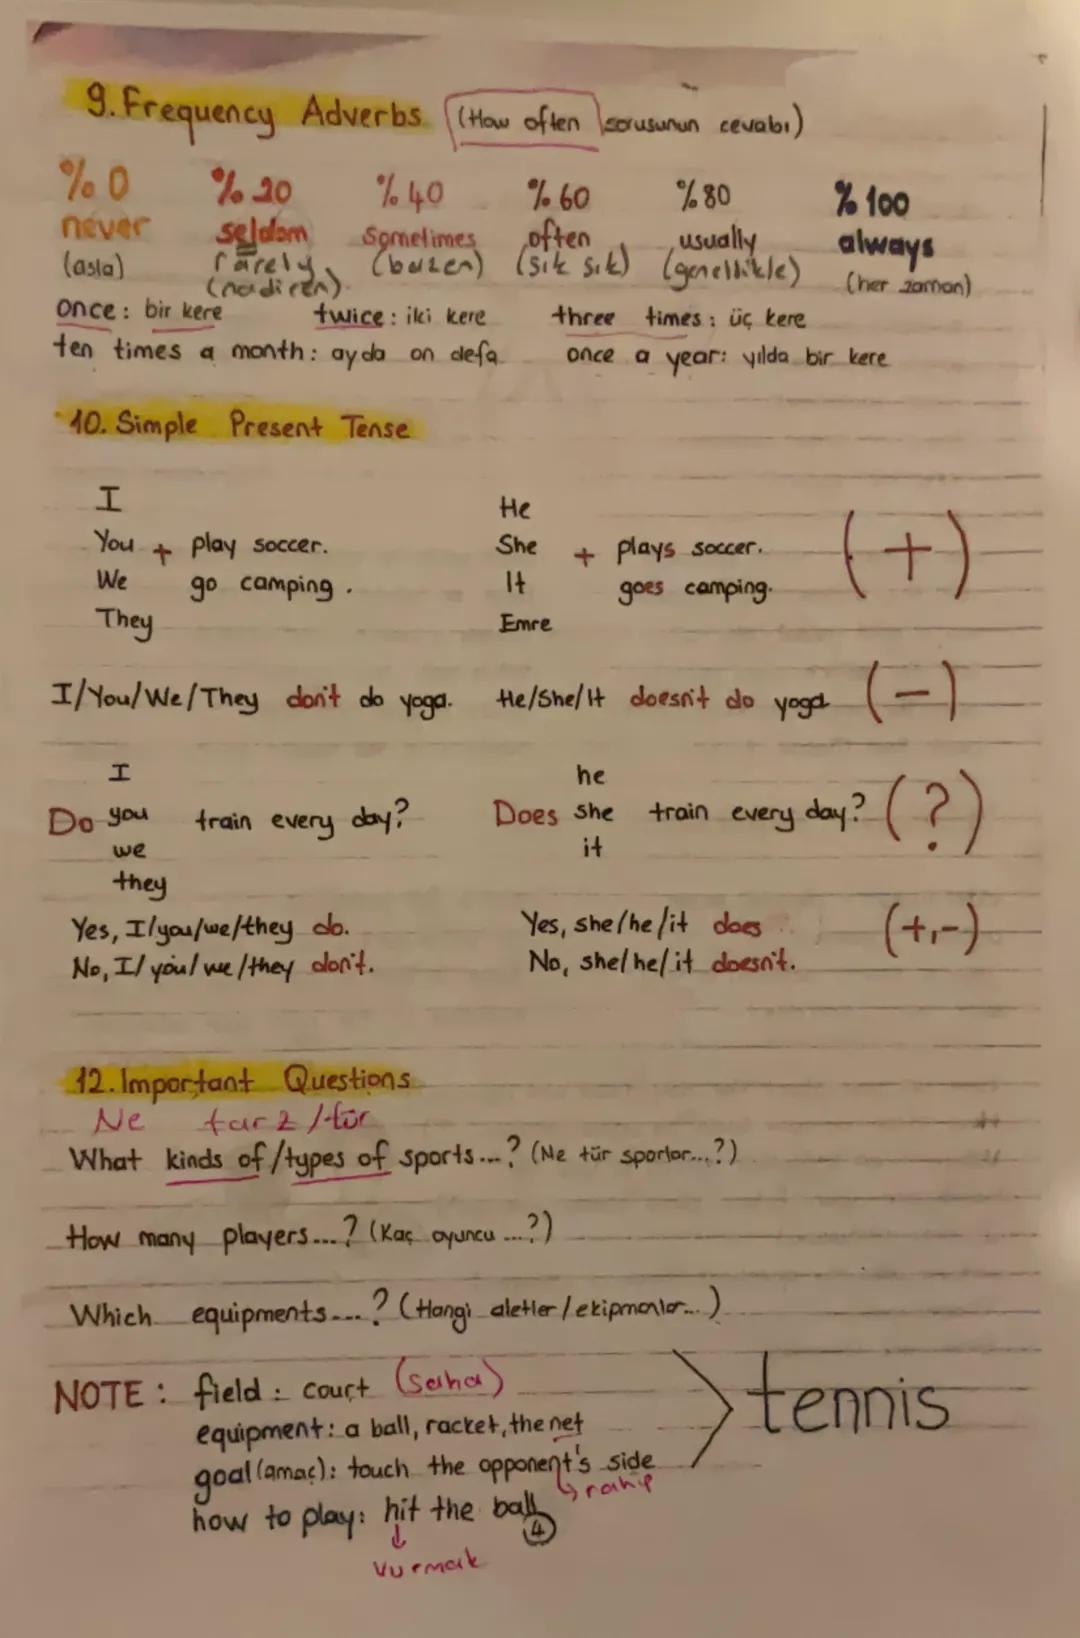 9. Frequency Adverbs (How often sorusunun cevabı)
% 0 % 20 % 40 % 60 % 80 % 100
never seldom sometimes often usually always
(asla) rarely (bazen) (sık sık) (genellikle) (her zaman)
(nadiren)
once: bir kere twice: iki kere three times: üç kere
ten times a month: ayda on defa once a year: yılda bir kere
10. Simple Present Tense
I He
You + play soccer. She + plays soccer. (+)
We go camping. It goes camping.
They Emre
I/You/We/They don't do yoga. He/She/It doesn't do yoga (-)
I he
Do you train every day? Does she train every day? (?)
we it
they
Yes, I/you/we/they do. Yes, she/he/it does (+,-)
No, I/you/we/they don't. No, she/he/it doesn't.
12. Important Questions
Ne tarz/tür
What kinds of/types of sports...? (Ne tür sporlar...?)
How many players...? (Kaç oyuncu...?)
Which equipments...? (Hangi aletler/ekipmanlar...)
NOTE: field: court (saha) > tennis
equipment: a ball, racket, the net
goal (amaç): touch the opponent's side
rakip
how to play: hit the ball
4
vurmak